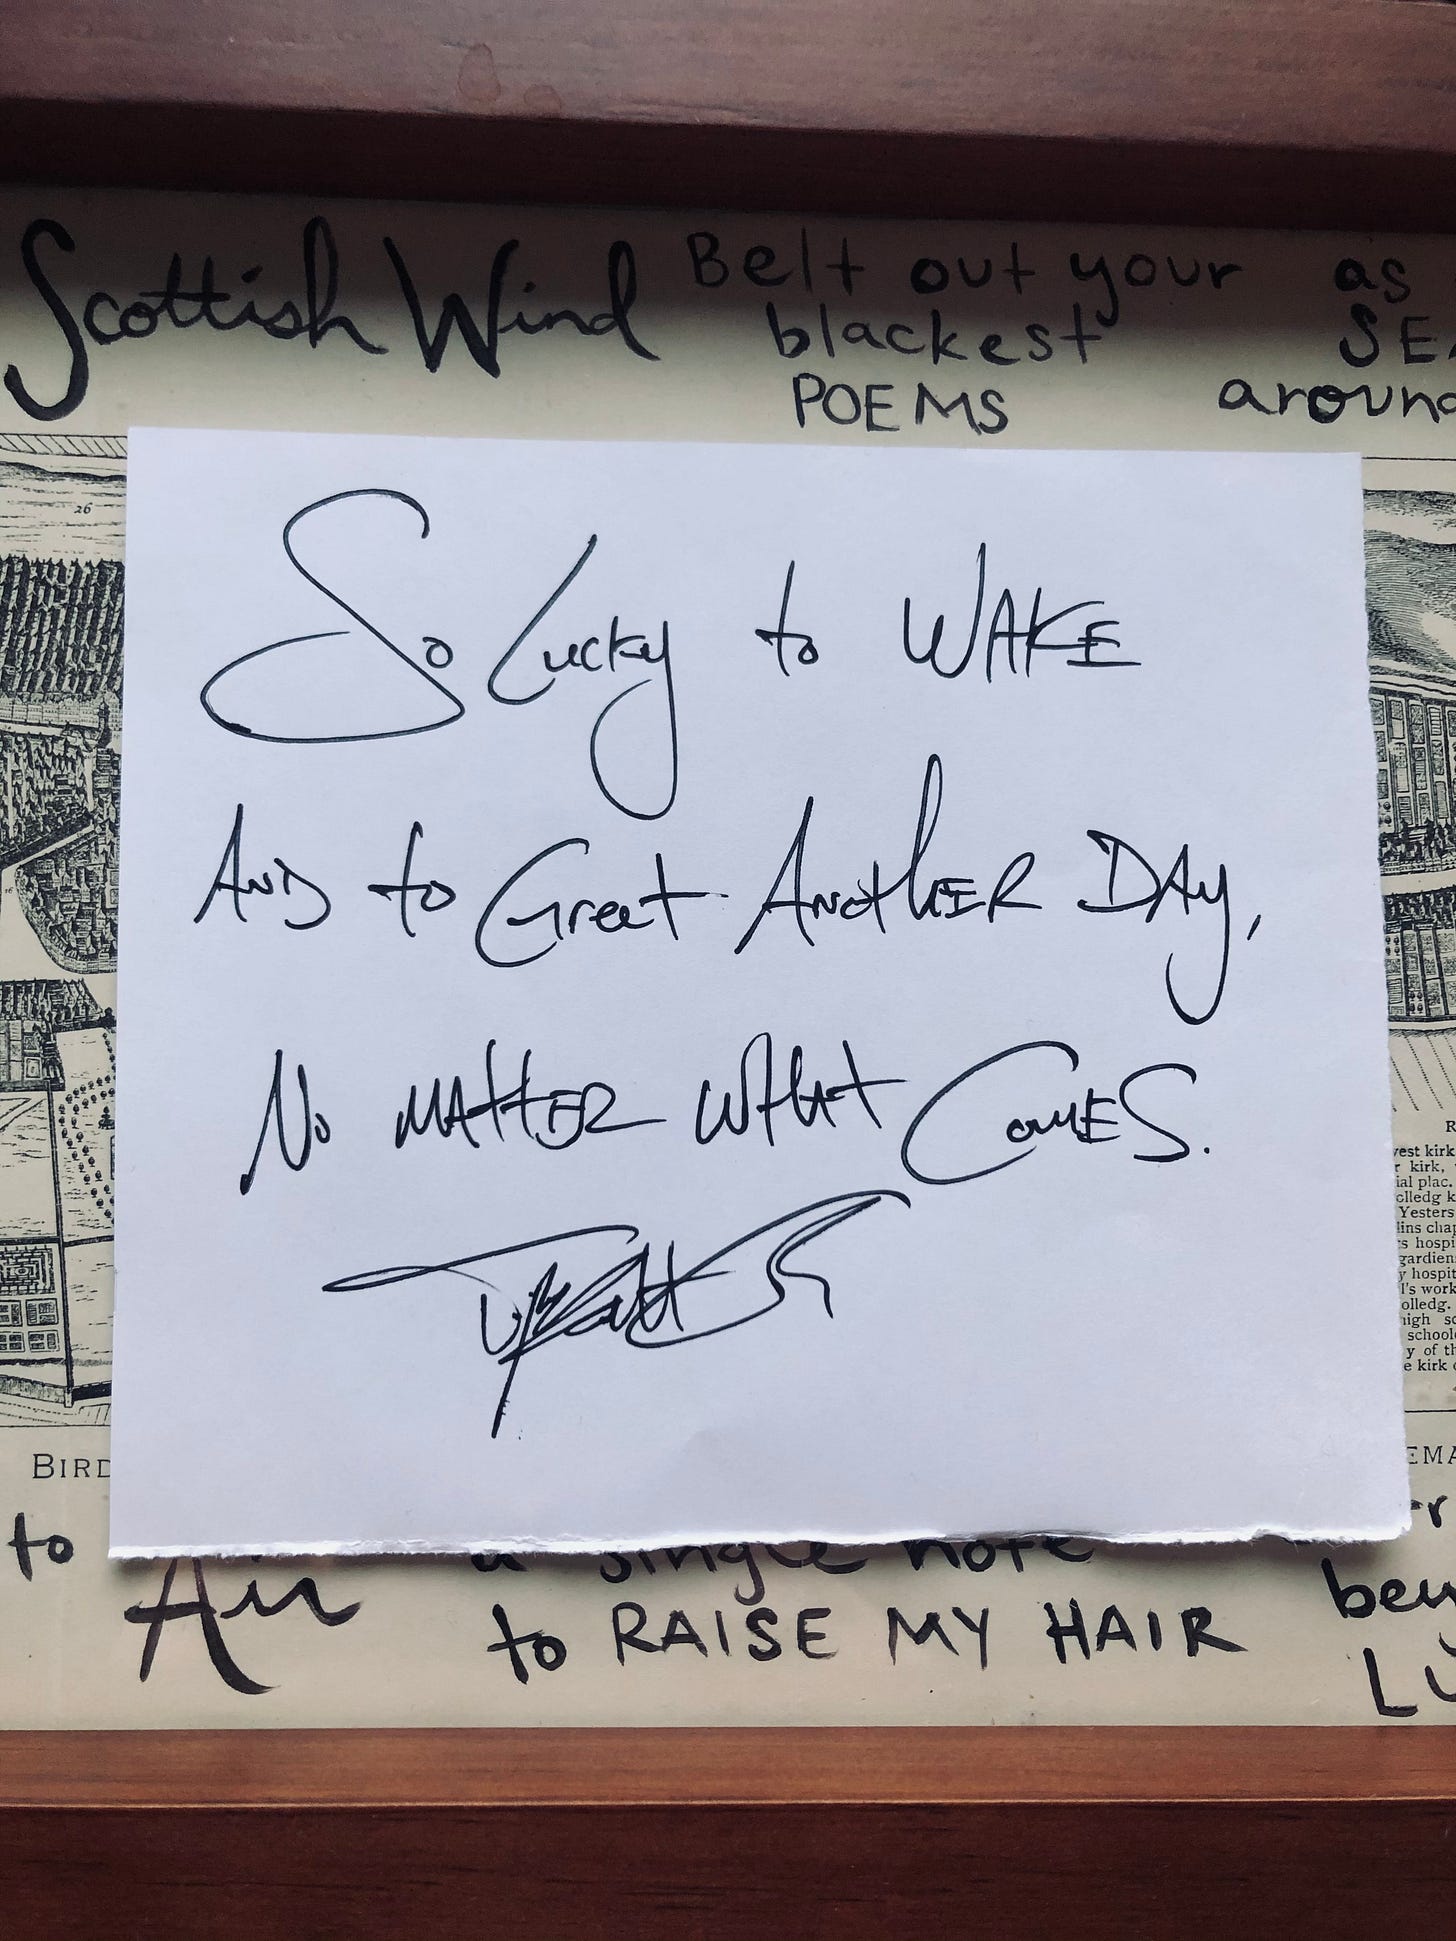 Scottish Wind Belt out your as
blackest
POEMS
around
26
So Lucky to WAKE
AND to Greet ANOTHER DAY,
No MATTER WHAT COMES.
vest kirk
kirk,
ial plac.
olledg
Yesters
lins
hospi
gardien
hospit
l's work
olledg.
high
schoole
y of
e kirk
BIRD
to
Air a single note
to RAISE MY HAIR